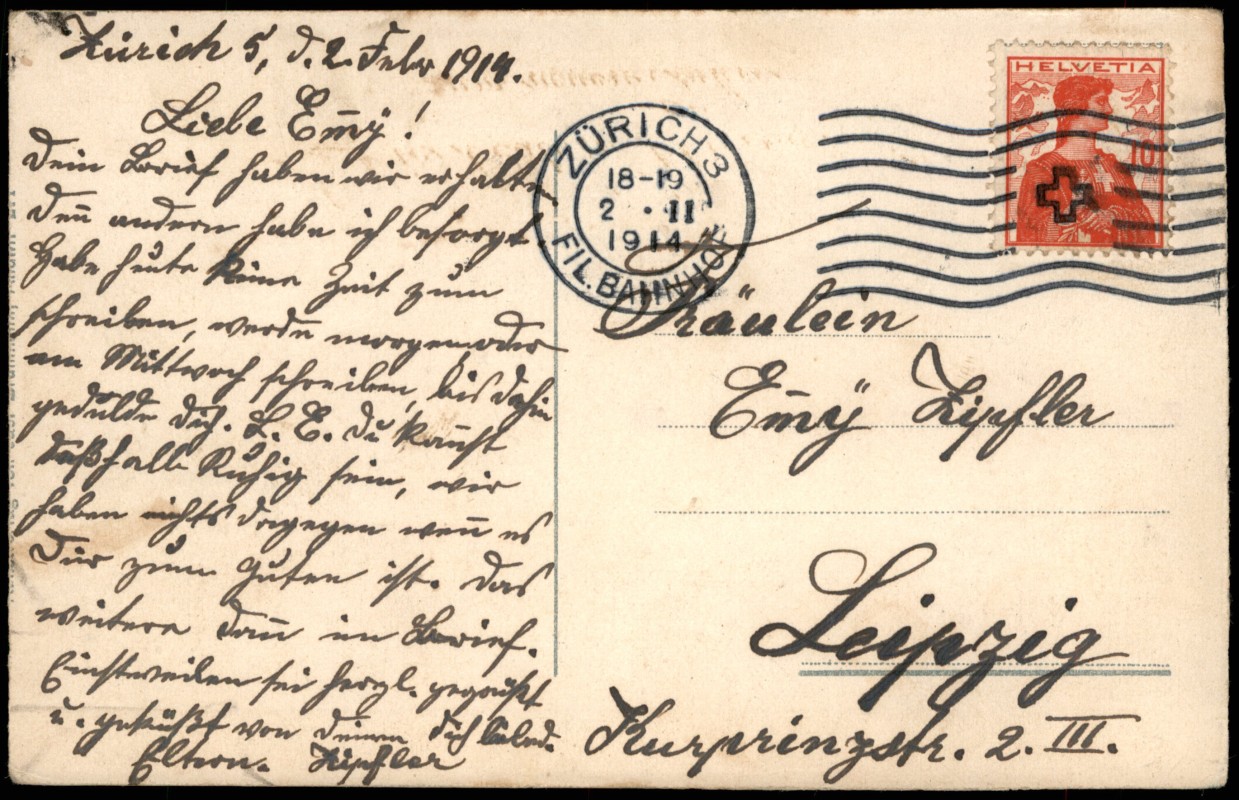 Zürich 5, d. 2. Febr 1914.
Liebe Em̄ÿ!
Dein Brief haben wir erhalten
deñ andern habe ich besorgt.
Habe heute keine Zeit zum
schreiben, werde morgen oder
am Mittwoch schreiben, bis dahin
gedulde dich. L. E. du kan̄st
deßhalb Ruhig sein, wir
haben nichts dagegen wen̄ es
Dir zum Guten ist. Das
weitere dan̄ im Brief.
Einstweilen sei herzl. gegrüßt
u. geküßt von deinen dich liebend.
Eltern. Zipfler
ZÜRICH 3
18-19
2 · II
1914
FIL. BAHNHOF
HELVETIA
10
Fräulein
Em̄ÿ Zipfler
Leipzig
Kurprinzstr. 2. III.